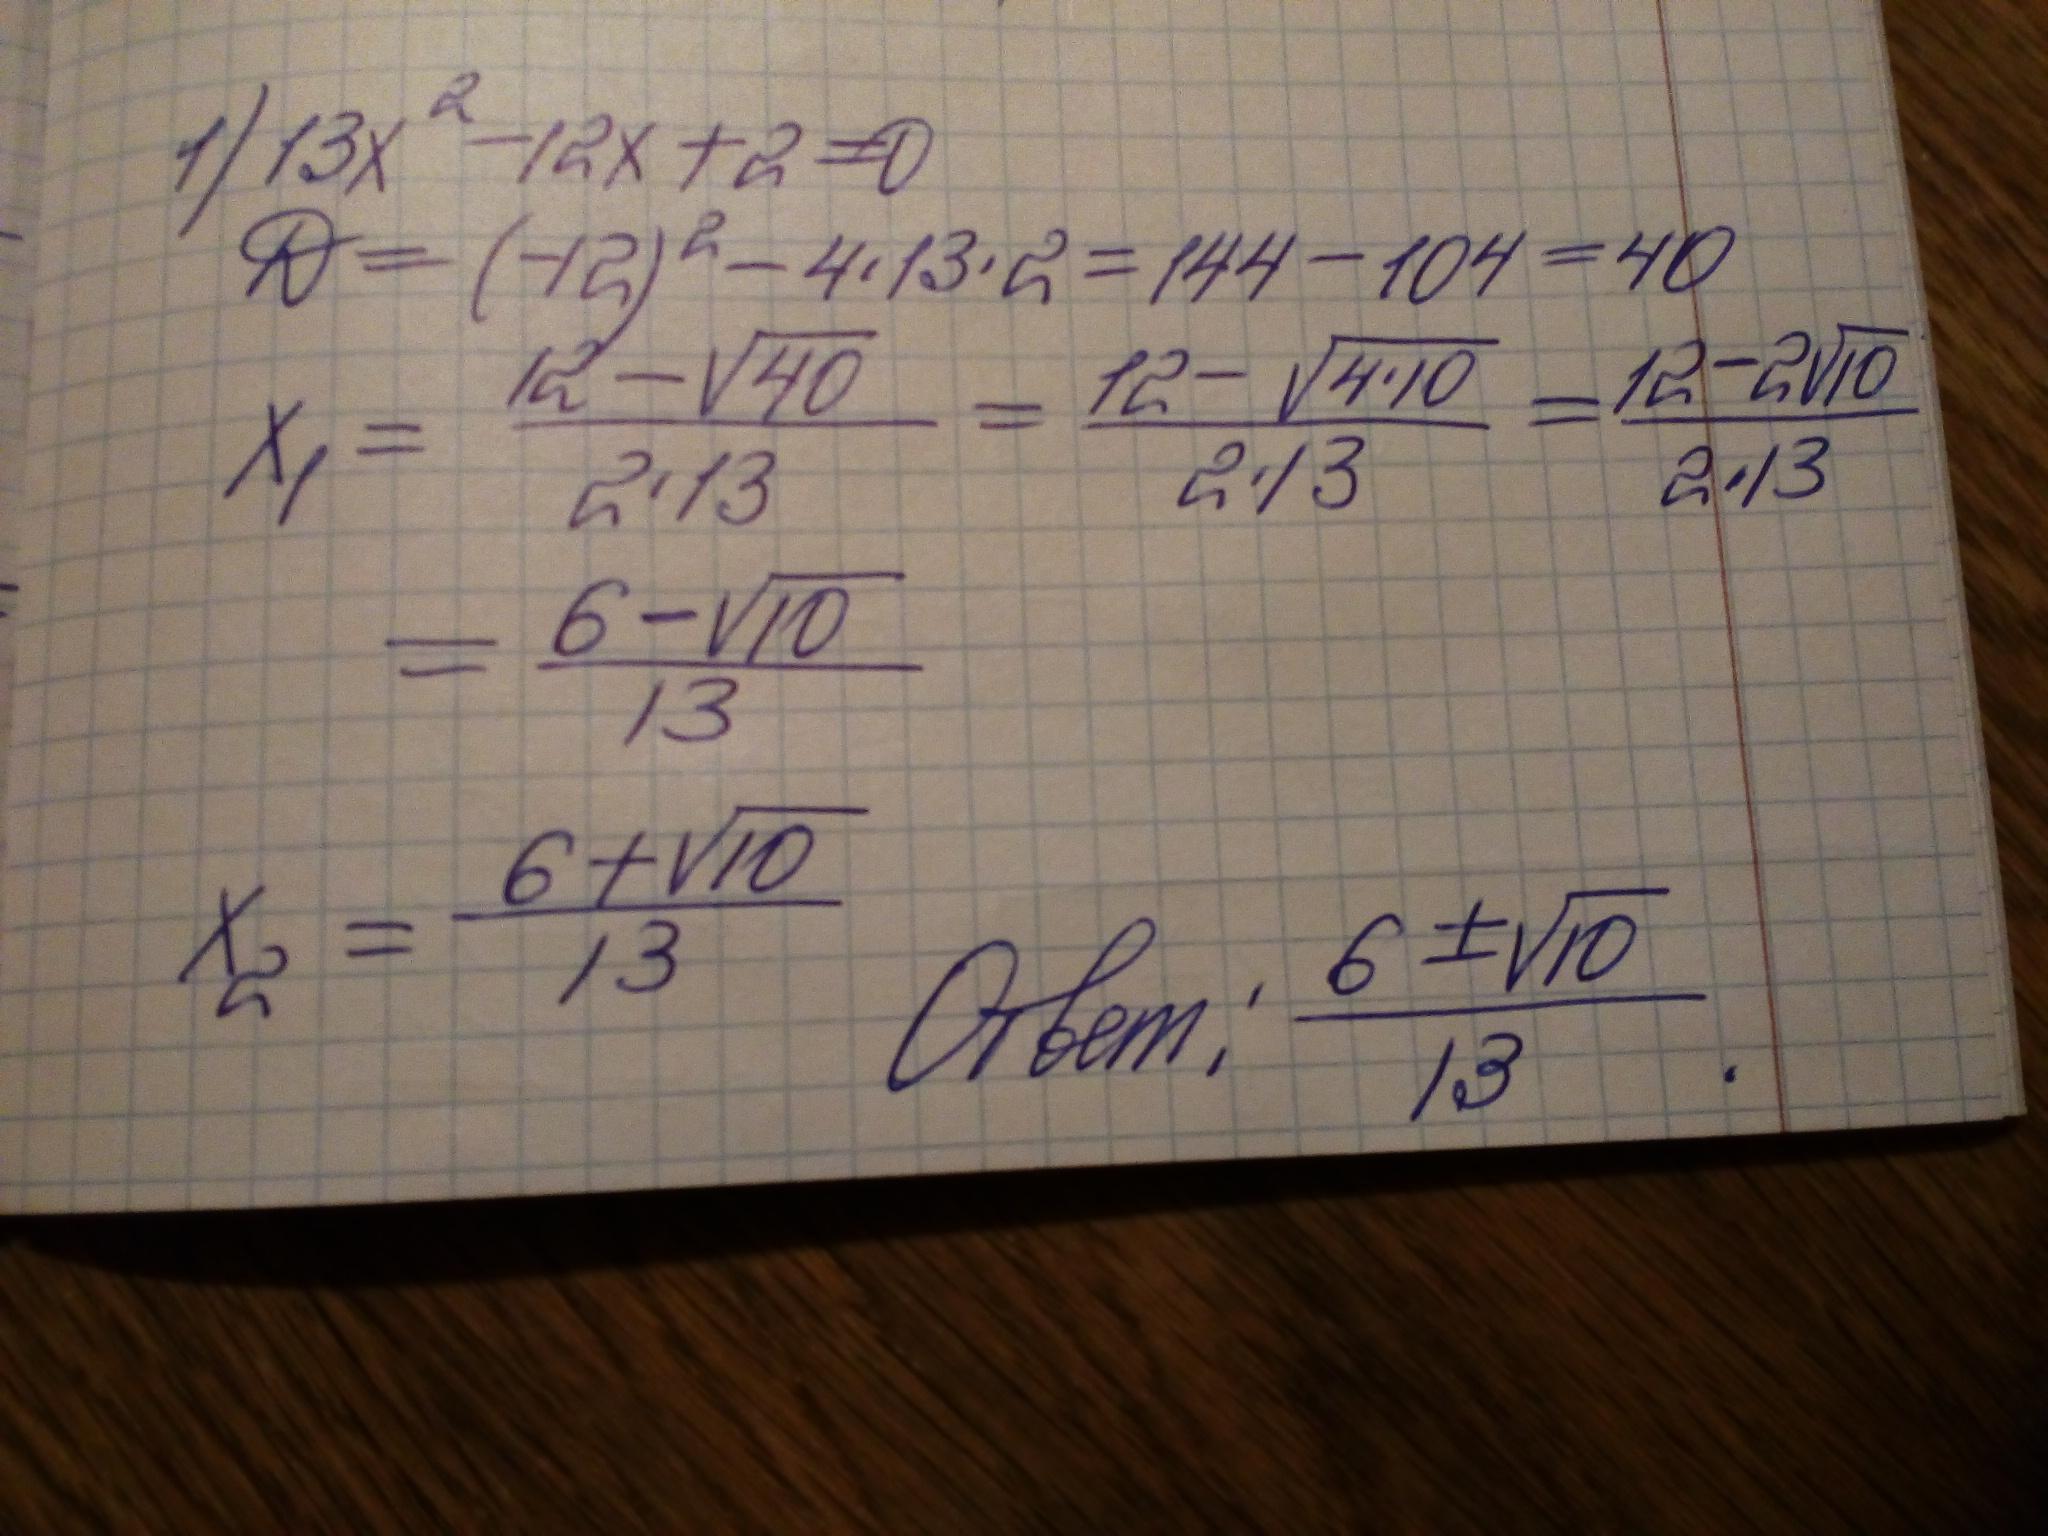 1) 13x² - 12x + 2 = 0
D = (-12)² - 4·13·2 = 144 - 104 = 40
x₁ = (12 - √40)/(2·13) = (12 - √(4·10))/(2·13) = (12 - 2√10)/(2·13)
= (6 - √10)/13
x₂ = (6 + √10)/13
Ответ: (6 ± √10)/13.